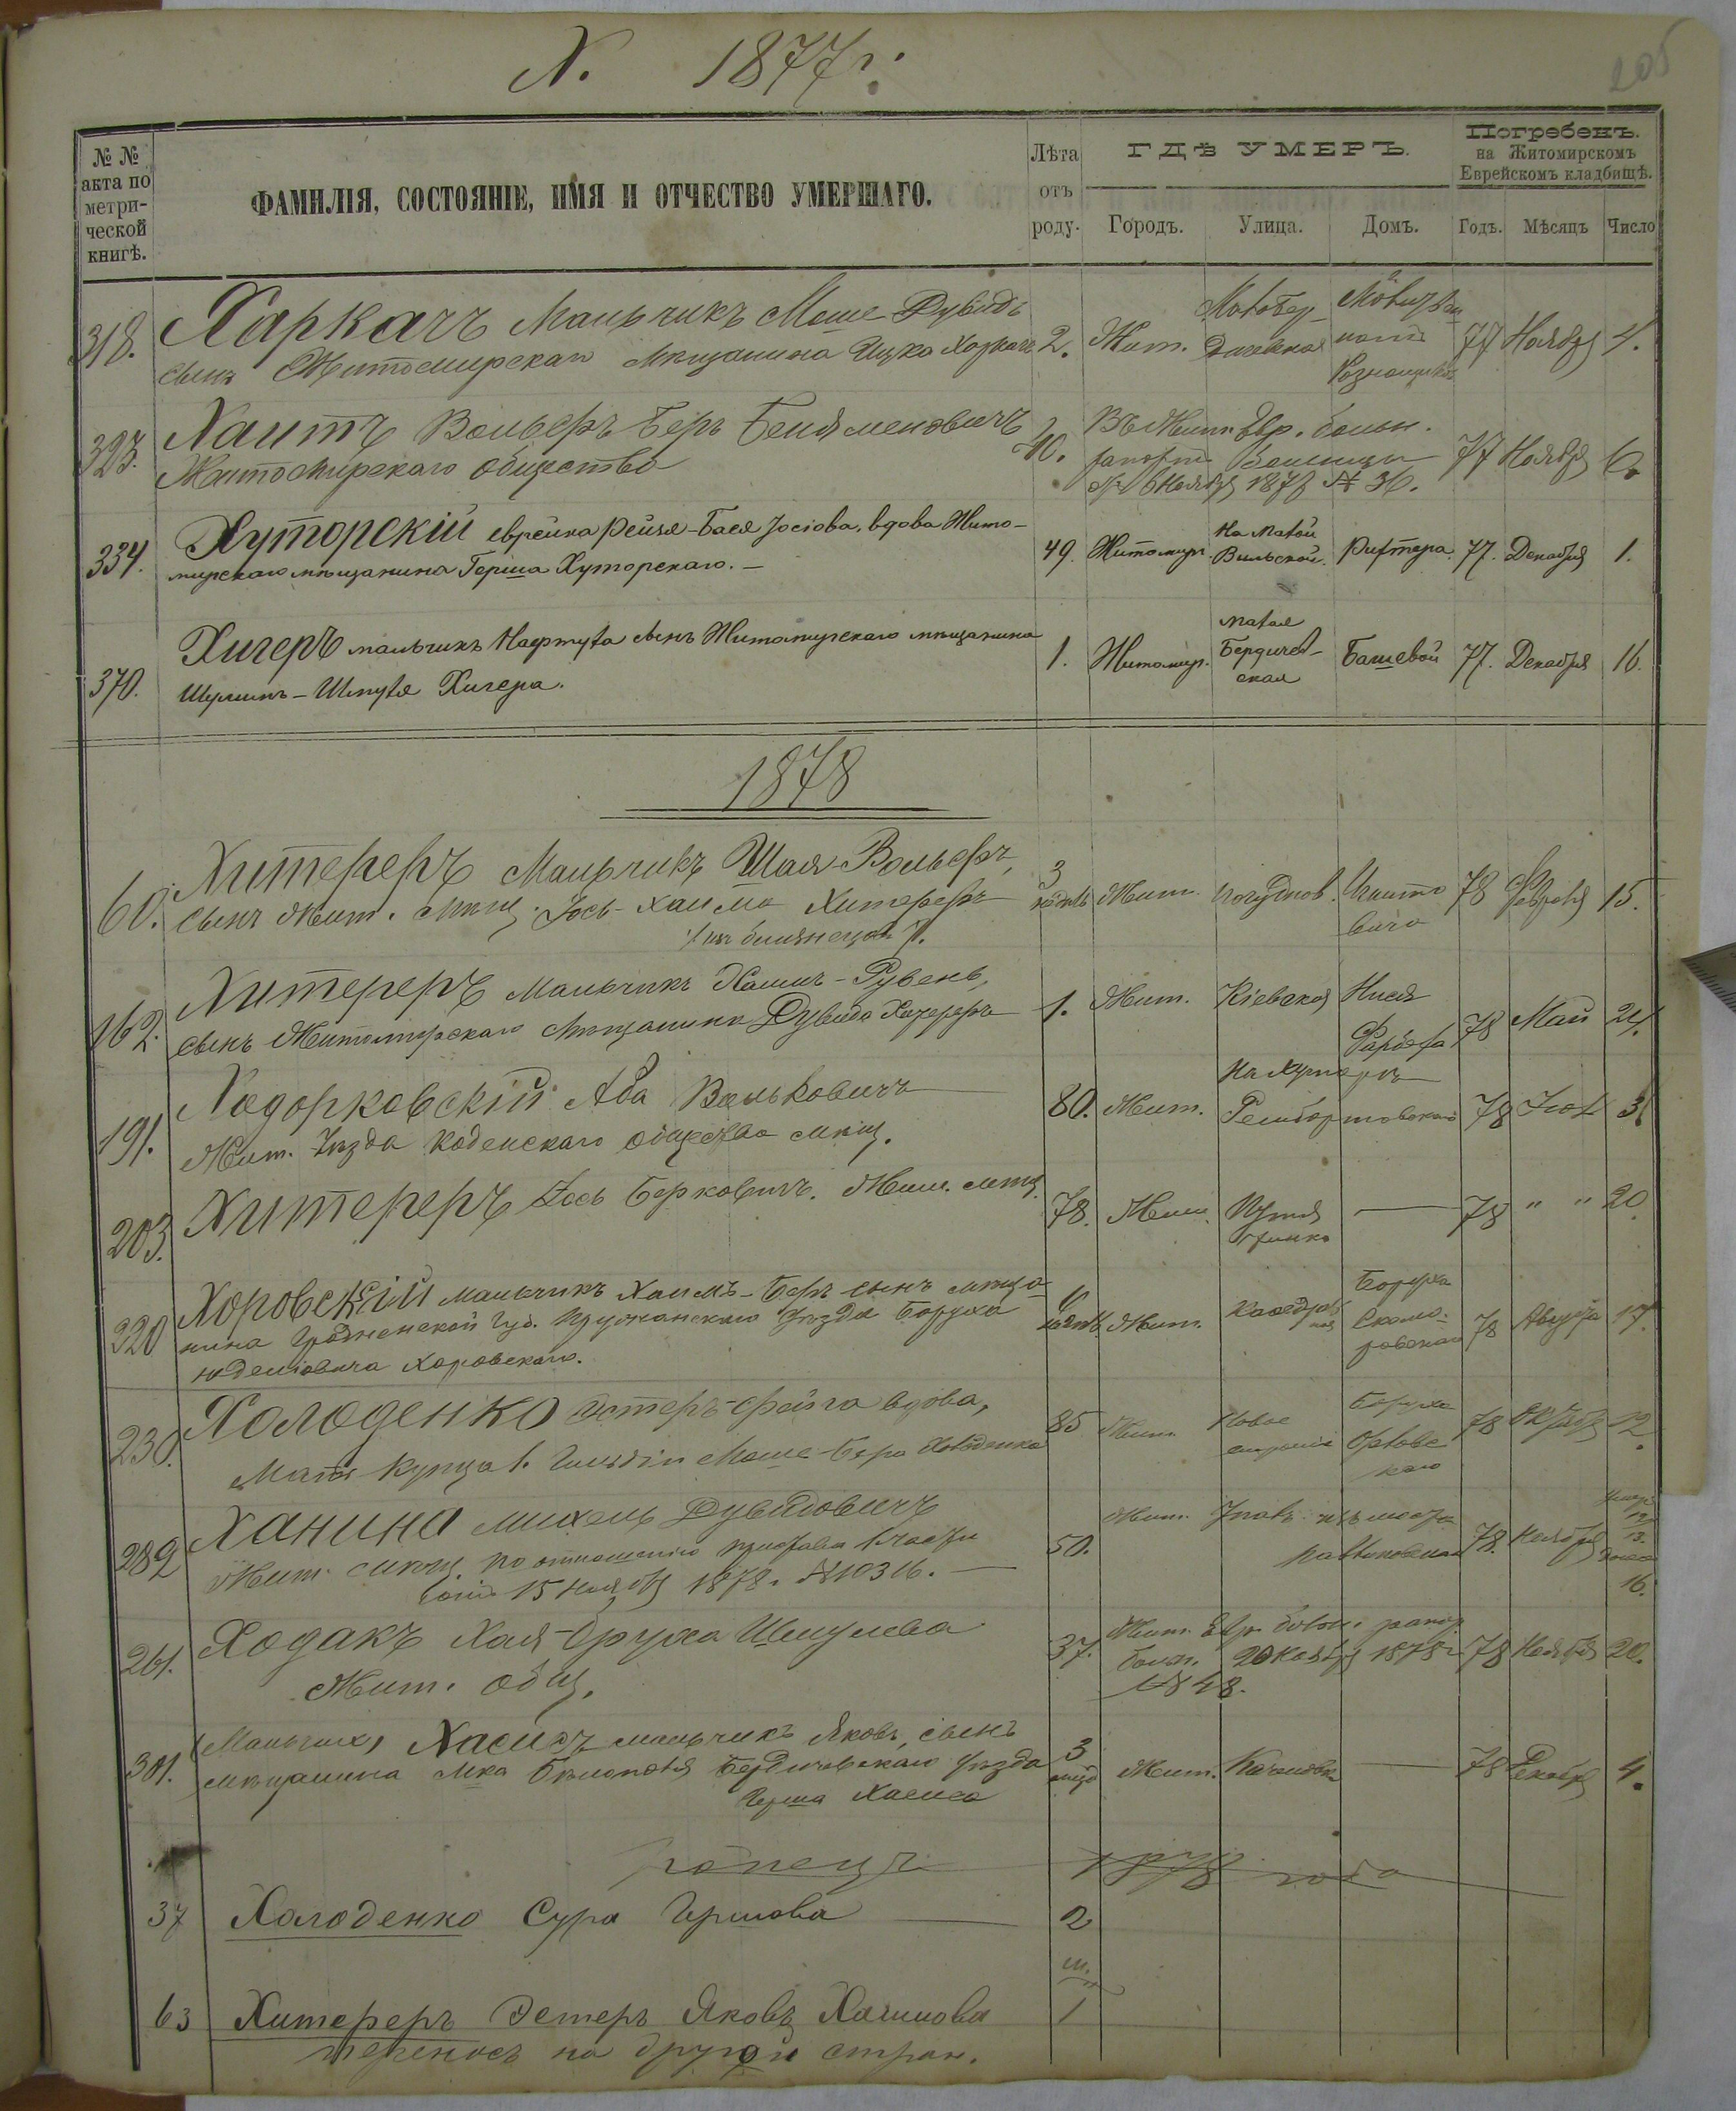 Х. 1877 г.
205
№ №
акта по
метри-
ческой
книгѣ.
ФАМИЛІЯ, СОСТОЯНІЕ, ИМЯ И ОТЧЕСТВО УМЕРШАГО.
Лѣта
отъ
роду.
ГДѢ УМЕРЪ.
Городъ.
Улица.
Домъ.
Погребенъ.
на Житомирскомъ
Еврейскомъ кладбищѣ.
Годъ.
Мѣсяцъ
Число
318. Харкачъ Мальчикъ Моше Дувидъ
сынъ Житомирскаго Мѣщанина Ицко Харкачъ 2. Жит. Малобер-
дичевская 77 Ноября 4.
323. Хаитъ Вольфъ Беръ Беніяменовичъ
Житомирскаго общества 40. Въ Жит. Евр. больн.
рапортъ больницы
6 Ноября 187 № 36. 77 Ноября 6
334. Хуторскій еврейка Рейзя-Бася Іосіова, вдова Жито-
мирскаго мѣщанина Герша Хуторскаго. — 49. Житомир. На Малой
Вильской. Рихтера. 77. Декабря 1.
370. Хигеръ мальчикъ Нафтула сынъ Житомирскаго мѣщанина
Шулимъ-Шмуля Хигера. 1. Житомир. Малая
Бердичев-
ская Башевой 77. Декабря 16.
1878
60. Хитереръ Мальчикъ Шая-Вольфъ,
сынъ Жит. мѣщ. Іось-Хаима Хитереръ
/ изъ близнецовъ /. 3 Жит. 78 Февраля 15.
162. Хитереръ Мальчикъ Хаимъ-Рувенъ,
сынъ Житомирскаго Мѣщанина Дувида Хитереръ 1. Жит. Кіевская 78 Май 21.
191. Ходорковскій Аба Вольковичъ
Жит. Уѣзда Коденскаго общества мѣщ. 80. Жит. На хуторѣ 78 Іюл 3
203. Хитереръ Іось Берковичъ. Жит. мѣщ. 78. Жит. — 78 " " 20
220 Хоровскій мальчикъ Хаимъ-Беръ сынъ мѣща-
нина Гродненской Губ. Пружанскаго Уѣзда Боруха
Юделіовича Хоровскаго. Жит. Каѳедраль
ная Боруха 78 Августа 17.
230. Холоденко Эстеръ-Фейга вдова,
Мать Купца 1. Гильдіи Моше-Бера Холоденко 85 Жит. Новое
строеніе Боруха
Орлов
скаго 78 12
282 Ханина Михель Дувидовичъ
Жит. мѣщ. по отношенію пристава 1 части
15 Ноября 1878. № 10316. — 50. Жит. 78. Ноября 13.
16.
261. Ходакъ Хая-Бруха Шмулева
Жит. общ. 37. Жит. Евр. больн. рапор.
больн. 20 Ноября 1878 г.
№ 48. 78 Ноября 20.
301. (Мальчикъ) Хасисъ мальчикъ Яковъ, сынъ
мѣщанина мка Бѣлополя Бердичевскаго Уѣзда
Герша Хасиса 3 Жит. — 78 Декабря 4.
Конецъ 1878 года
37 Холоденко Сура Гершова 2
м.
63 Хитереръ Эстеръ Яковъ Хаимова 1
переносъ на другой стран.